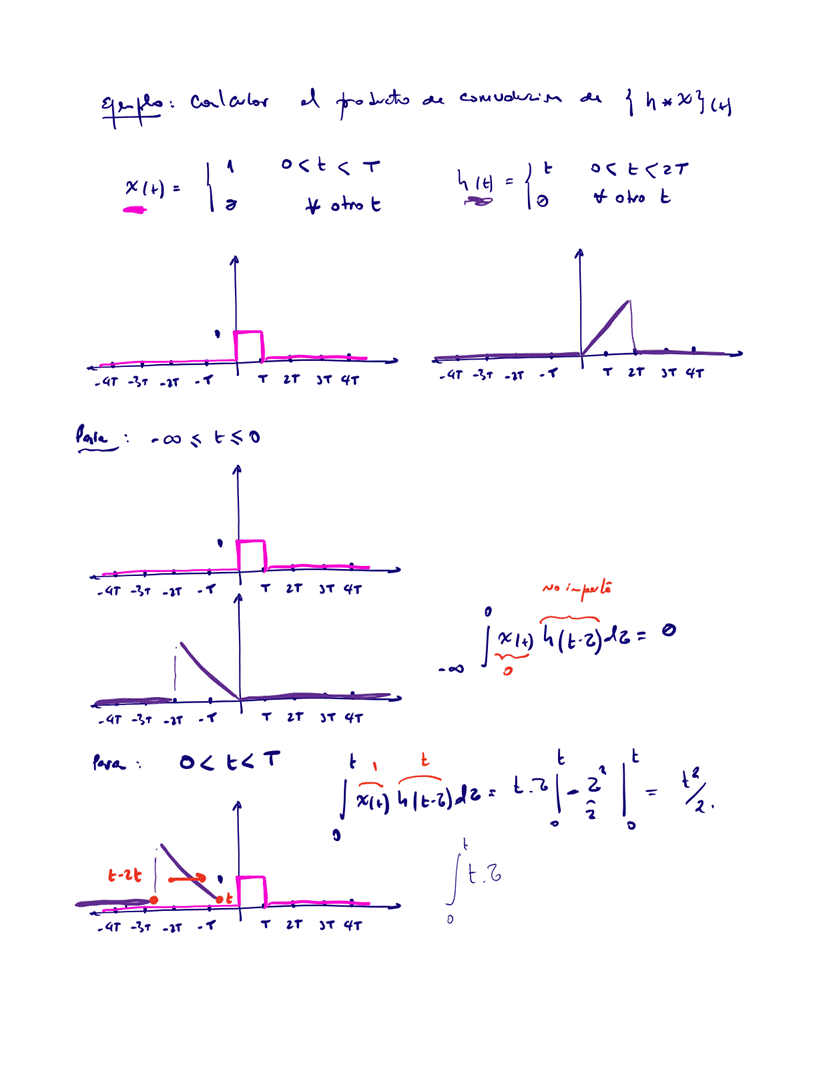 Ejemplo: Calcular el producto de convolución de {h * x}(t)
x(t) = { 1 0 < t < T
0 ∀ otro t
h(t) = { t 0 < t < 2T
0 ∀ otro t
-4T -3T -2T -T T 2T 3T 4T
-4T -3T -2T -T T 2T 3T 4T
Para: -∞ ≤ t ≤ 0
-4T -3T -2T -T T 2T 3T 4T
No importa
∫ -∞ 0 x(t) h(t-τ)dτ = 0
0
-4T -3T -2T -T T 2T 3T 4T
Para: 0 < t < T
1 t
∫ 0 t x(t) h(t-τ)dτ = t.τ | 0 t - τ²/2 | 0 t = t²/2.
t-2t
t
∫ 0 t t.τ
-4T -3T -2T -T T 2T 3T 4T